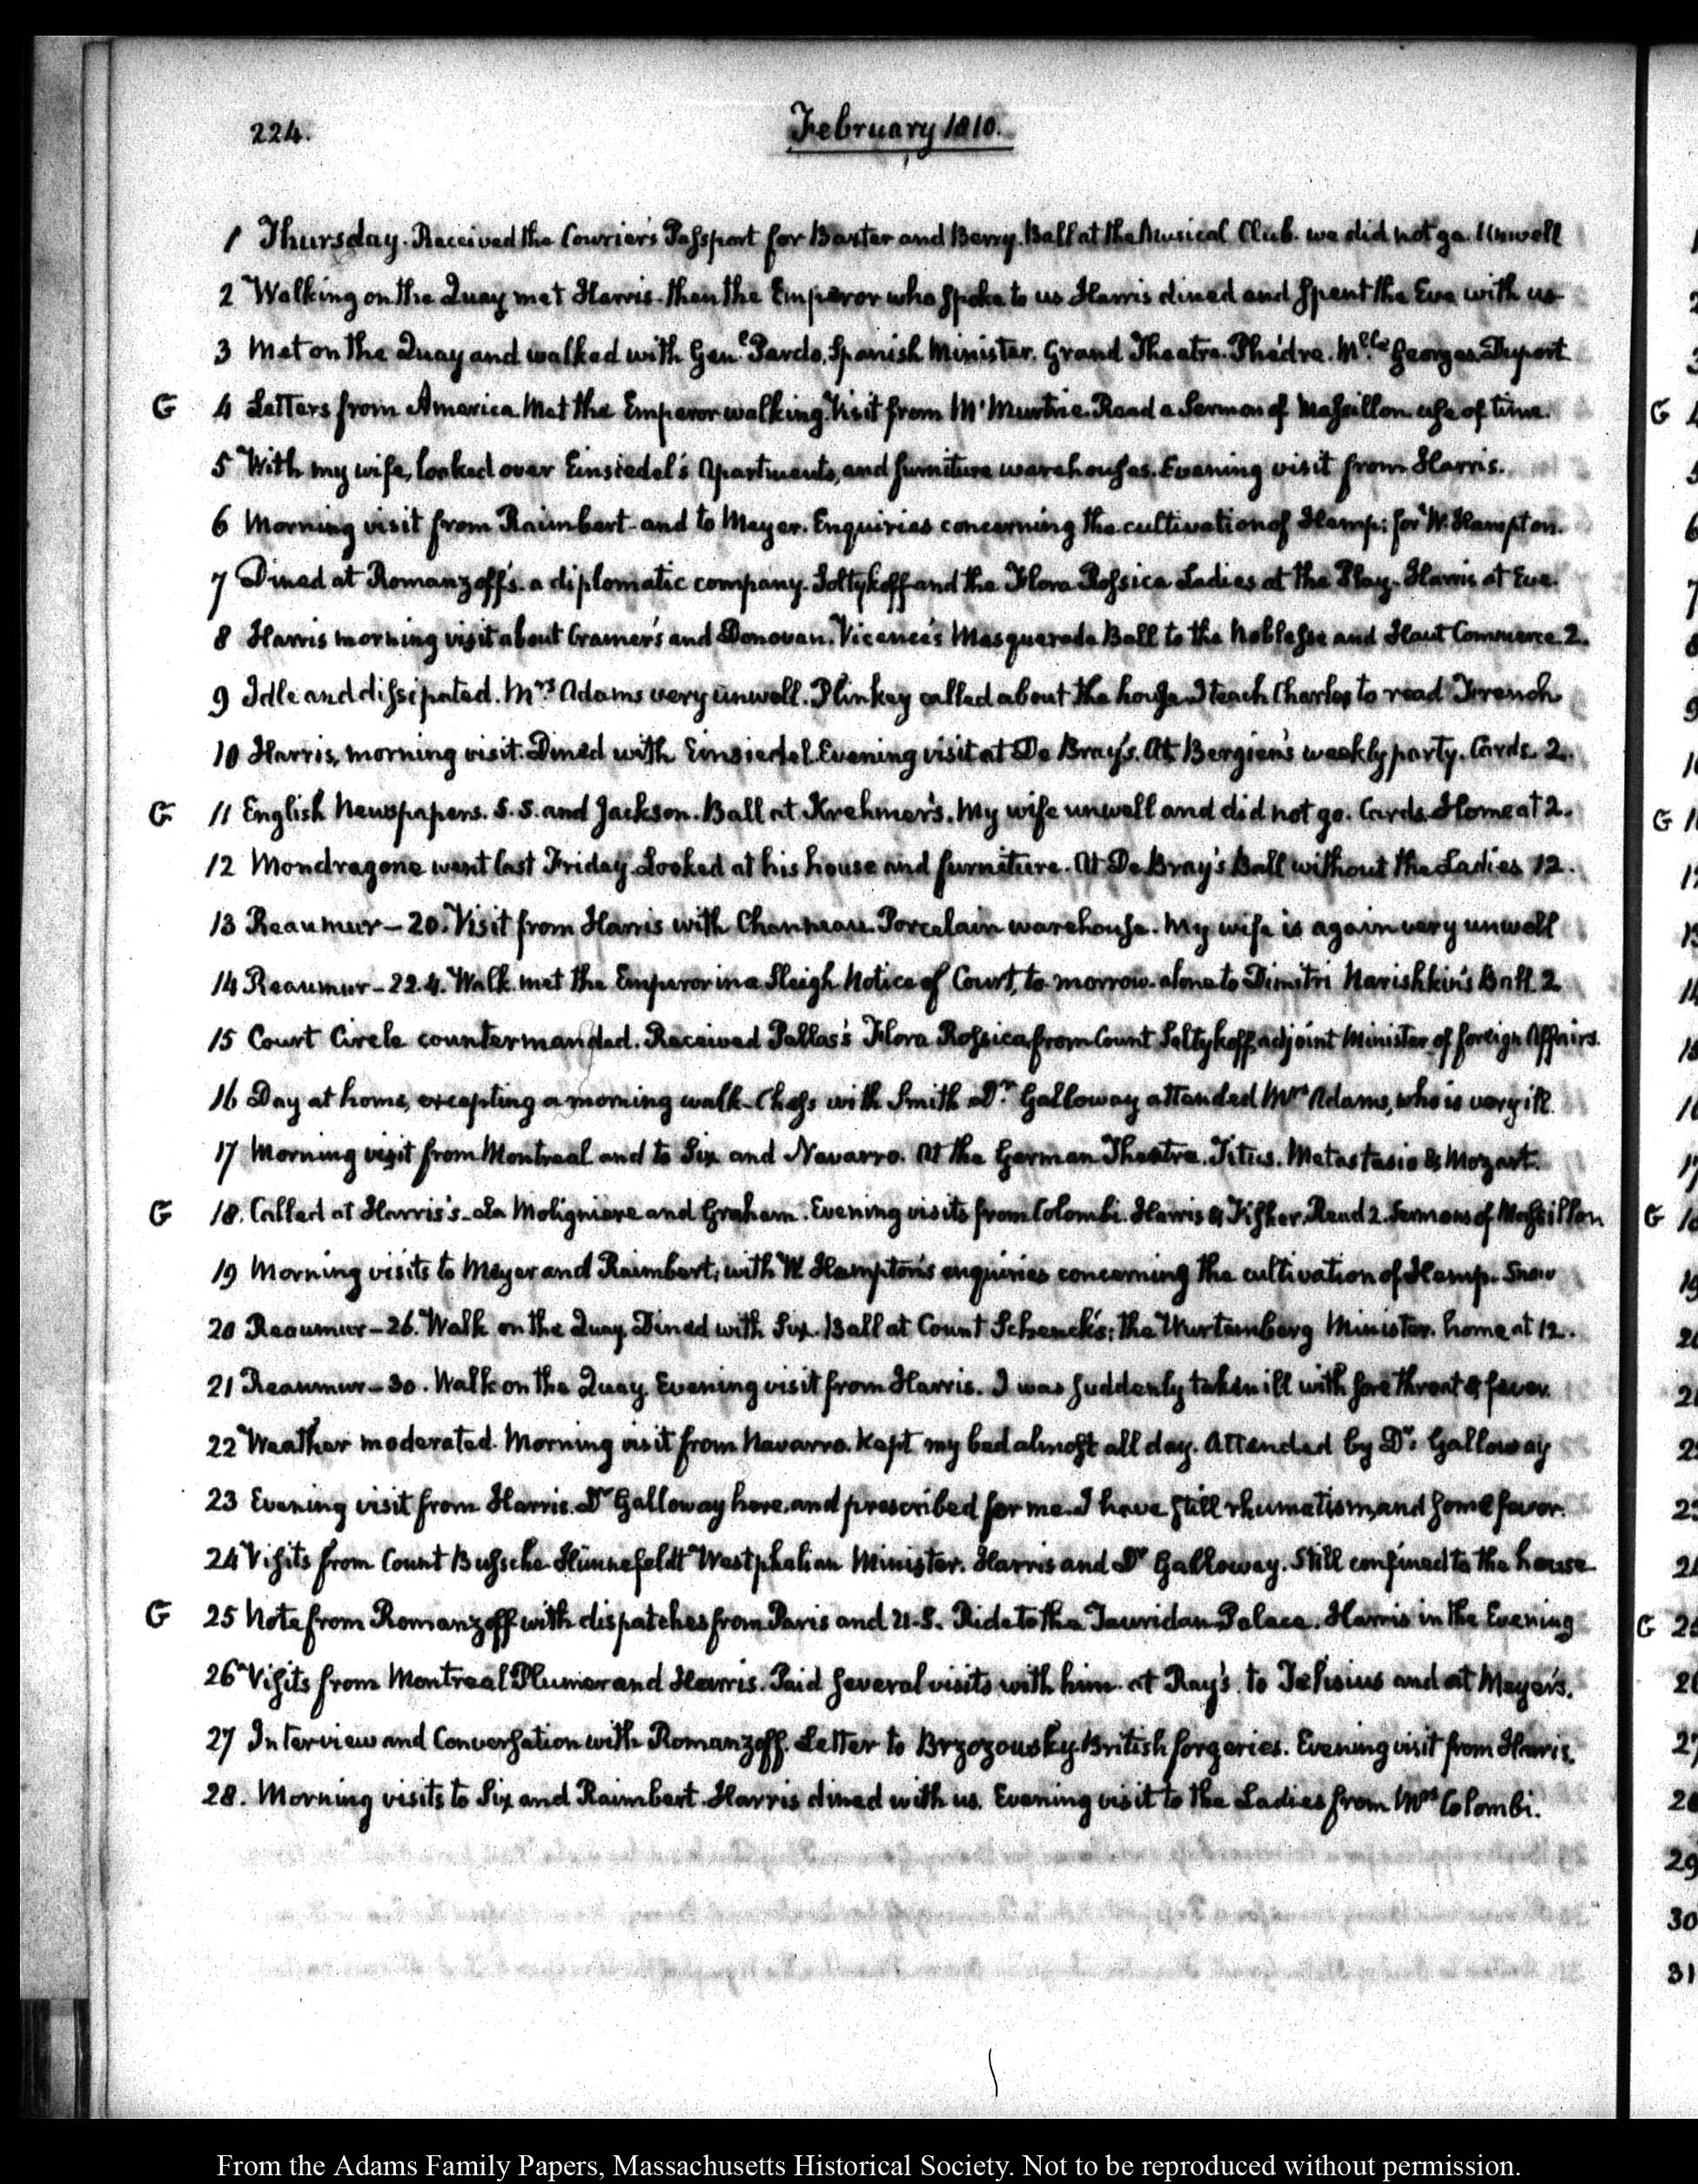 224.
February 1810.
1 Thursday. Received the Courier's Passport for Baxter and Berry. Ball at the Musical Club. we did not go. Unwell
2 Walking on the Quay met Harris. then the Emperor who spoke to us Harris dined and spent the Eve with us
3 Met on the Quay and walked with Genl. Pardo, Spanish Minister. Grand Theatre. Phédre. Mlle. Georges. Duport
G 4 Letters from America. Met the Emperor walking. Visit from McMurtrie. Read a Sermon of Massillon. use of time.
5 With my wife, looked over Einsiedel's Apartments, and furniture warehouses. Evening visit from Harris.
6 Morning visit from Raimbert. and to Meyer. Enquiries concerning the cultivation of Hemp: for W. Hampton.
7 Dined at Romanzoff's. a diplomatic company. Soltykoff and the Flora Rossica Ladies at the Play. Harris at Eve.
8 Harris morning visit about Cramer's and Donovan. Vicence's Masquerade Ball to the Noblesse and Haut Commerce. 2.
9 Idle and dissipated. Mrs. Adams very unwell. Plinkey called about the house I teach Charles to read French
10 Harris, morning visit. Dined with Einsiedel. Evening visit at De Bray's. At Bergien's weekly party. Cards. 2.
G 11 English Newspapers. S. S. and Jackson. Ball at Krehmer's. My wife unwell and did not go. Cards. Home at 2.
12 Mondragone went last Friday. Looked at his house and furniture. At De Bray's Ball without the Ladies 12.
13 Reaumur – 20. Visit from Harris with Porcelain warehouse. My wife is again very unwell
14 Reaumur – 22.4. Walk. met the Emperor in a Sleigh Notice of Court, to-morrow. alone to Dimitri Narishkin's Ball. 2
15 Court Circle countermanded. Received Pallas's Flora Rossica from Count Soltykoff, adjoint Minister of foreign Affairs.
16 Day at home, excepting a morning walk. Chess with Smith Dr. Galloway attended Mrs Adams, who is very ill.
17 Morning visit from Montreal and to Six and Navarro. At the German Theatre. Titus. Metastasio & Mozart.
G 18. Called at Harris's. La Moligniere and Graham. Evening visits from Colombi. Harris & Fisher. Read 2. Sermons of Massillon
19 Morning visits to Meyer and Raimbert, with W Hampton's enquiries concerning the cultivation of Hemp. Snow
20 Reaumur – 26. Walk on the Quay. Dined with Six. Ball at Count Schenck's: the Wurtemberg Minister. home at 12.
21 Reaumur – 30. Walk on the Quay. Evening visit from Harris. I was suddenly taken ill with sore throat & fever.
22 Weather moderated. Morning visit from Navarro. Kept my bed almost all day. Attended by Dr. Galloway
23 Evening visit from Harris. Dr Galloway here, and prescribed for me. I have still rhumatism, and some fever.
24 Visits from Count Bussche Hünnefeldt Westphalian Minister. Harris and Dr Galloway. Still confined to the house
G 25 Note from Romanzoff with dispatches from Paris and U.S. Ride to the Tauridan Palace. Harris in the Evening
26 Visits from Montreal Plumer and Harris. Paid several visits with him. at Ray's. to Jelisius and at Meyer's.
27 Interview and Conversation with Romanzoff. Letter to Brzozousky. British forgeries. Evening visit from Harris.
28. Morning visits to Six and Raimbert. Harris dined with us. Evening visit to the Ladies from Mrs Colombi.
From the Adams Family Papers, Massachusetts Historical Society. Not to be reproduced without permission.